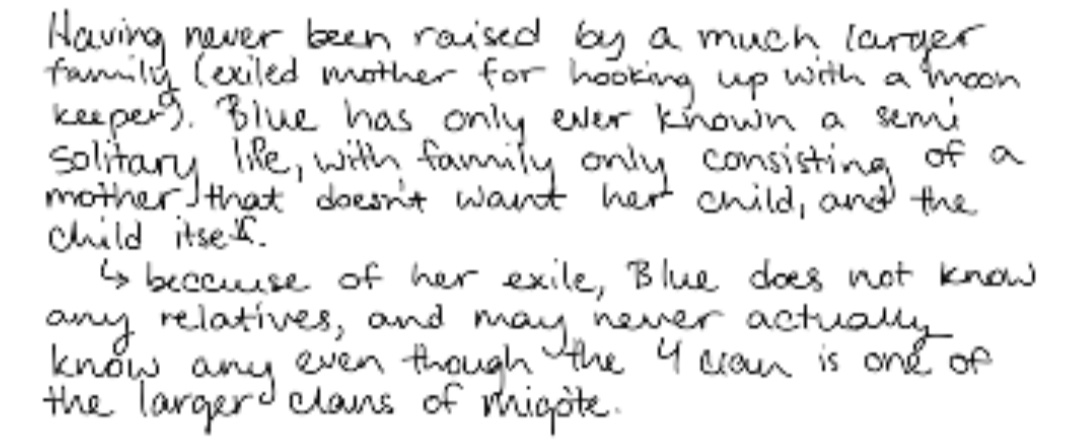 Having never been raised by a much larger
family (exiled mother for hooking up with a moon
keeper). Blue has only ever known a semi
solitary life, with family only consisting of a
mother that doesn't want her child, and the
child itself.
↳ because of her exile, Blue does not know
any relatives, and may never actually
know any even though the 4 clan is one of
the larger clans of miqote.